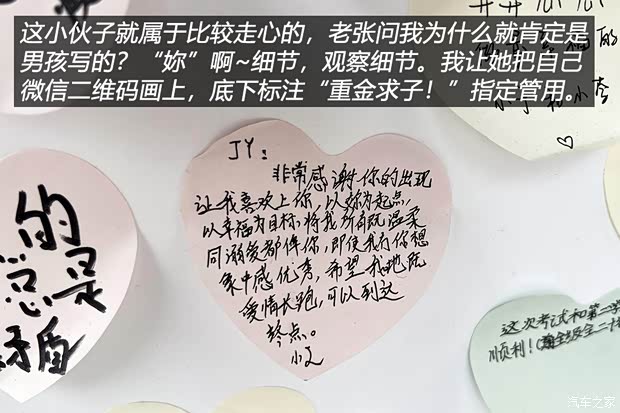 这小伙子就属于比较走心的，老张问我为什么就肯定是
男孩写的？“妳”啊~细节，观察细节。我让她把自己
微信二维码画上，底下标注“重金求子！”指定管用。
JY：
非常感谢你的出现
让我喜欢上你，以妳为起点，
以幸福为目标，将我所有既温柔
同溺爱都伴你，即使我冇你想
象中感优秀，希望我哋既
爱情长跑，可以到达
终点。
的
总是
矛盾
这次考试和第一学
顺利！
汽车之家